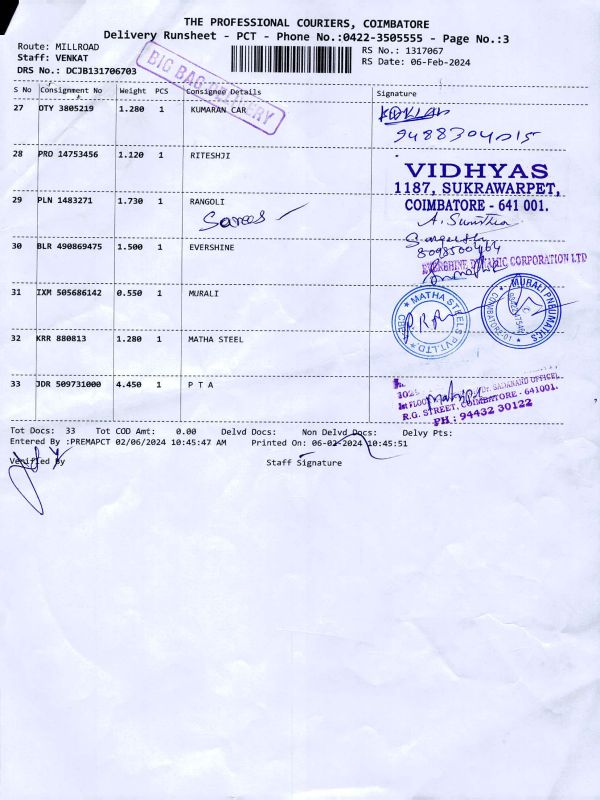 THE PROFESSIONAL COURIERS, COIMBATORE
Delivery Runsheet - PCT - Phone No.:0422-3505555 - Page No.:3
Route: MILLROAD
RS No.: 1317067
Staff: VENKAT
RS Date: 06-Feb-2024
DRS No.: DCJB131706703
BIG BAG DELIVERY
S No Consignment No Weight PCS Consignee Details Signature
27 DTY 3805219 1.280 1 KUMARAN CAR
9488304015
28 PRO 14753456 1.120 1 RITESHJI
VIDHYAS
1187, SUKRAWARPET,
COIMBATORE - 641 001.
29 PLN 1483271 1.730 1 RANGOLI
Sarees
30 BLR 490869475 1.500 1 EVERSHINE
8098500464
EVERSHINE DYNAMIC CORPORATION LTD
31 IXM 505686142 0.550 1 MURALI
MURALI PNEUMATICS
COIMBATORE
32 KRR 880813 1.280 1 MATHA STEEL
MATHA STEELS PVT.LTD
33 JDR 509731000 4.450 1 P T A
Dr. SADANAND OFFICE,
Ist FLOOR
R.G. STREET, COIMBATORE - 641001.
PH : 94432 30122
Tot Docs: 33 Tot COD Amt: 0.00 Delvd Docs: Non Delvd Docs: Delvy Pts:
Entered By :PREMAPCT 02/06/2024 10:45:47 AM Printed On: 06-02-2024 10:45:51
Verified By
Staff Signature